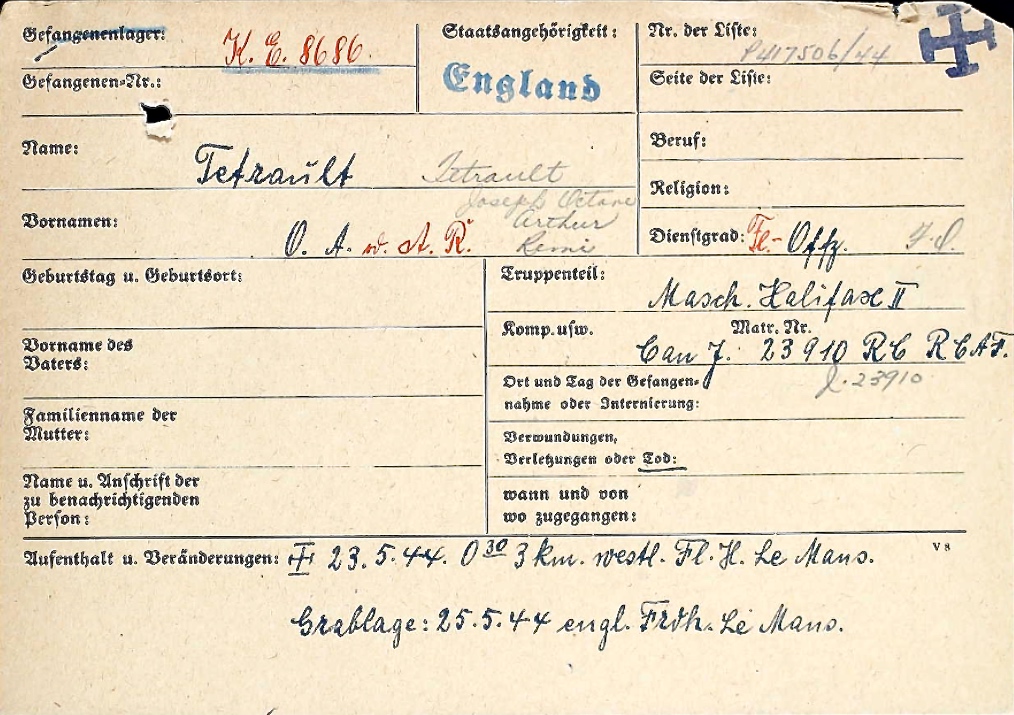 Gefangenenlager: K. E. 8686.
Staatsangehörigkeit:
England
Nr. der Liste: P417506/44
Gefangenen-Nr.:
Seite der Liste:
Name: Tetrault Tetrault
Beruf:
Religion:
Vornamen: O. A. v. A. R. Joseph Octave
Arthur
Remi
Dienstgrad: Fl.- Offz. F.O.
Geburtstag u. Geburtsort:
Truppenteil: Masch. Halifax II
Vorname des
Vaters:
Komp. usw. Matr. Nr.
Can J. 23910 RC RCAF.
J. 23910
Ort und Tag der Gefangen-
nahme oder Internierung:
Familienname der
Mutter:
Verwundungen,
Verletzungen oder Tod:
Name u. Anschrift der
zu benachrichtigenden
Person:
wann und von
wo zugegangen:
Aufenthalt u. Veränderungen: 23.5.44. 0 30 3 km. westl. Fl. H. Le Mans.
V 8
Grablage: 25.5.44 engl. Frdh. Le Mans.